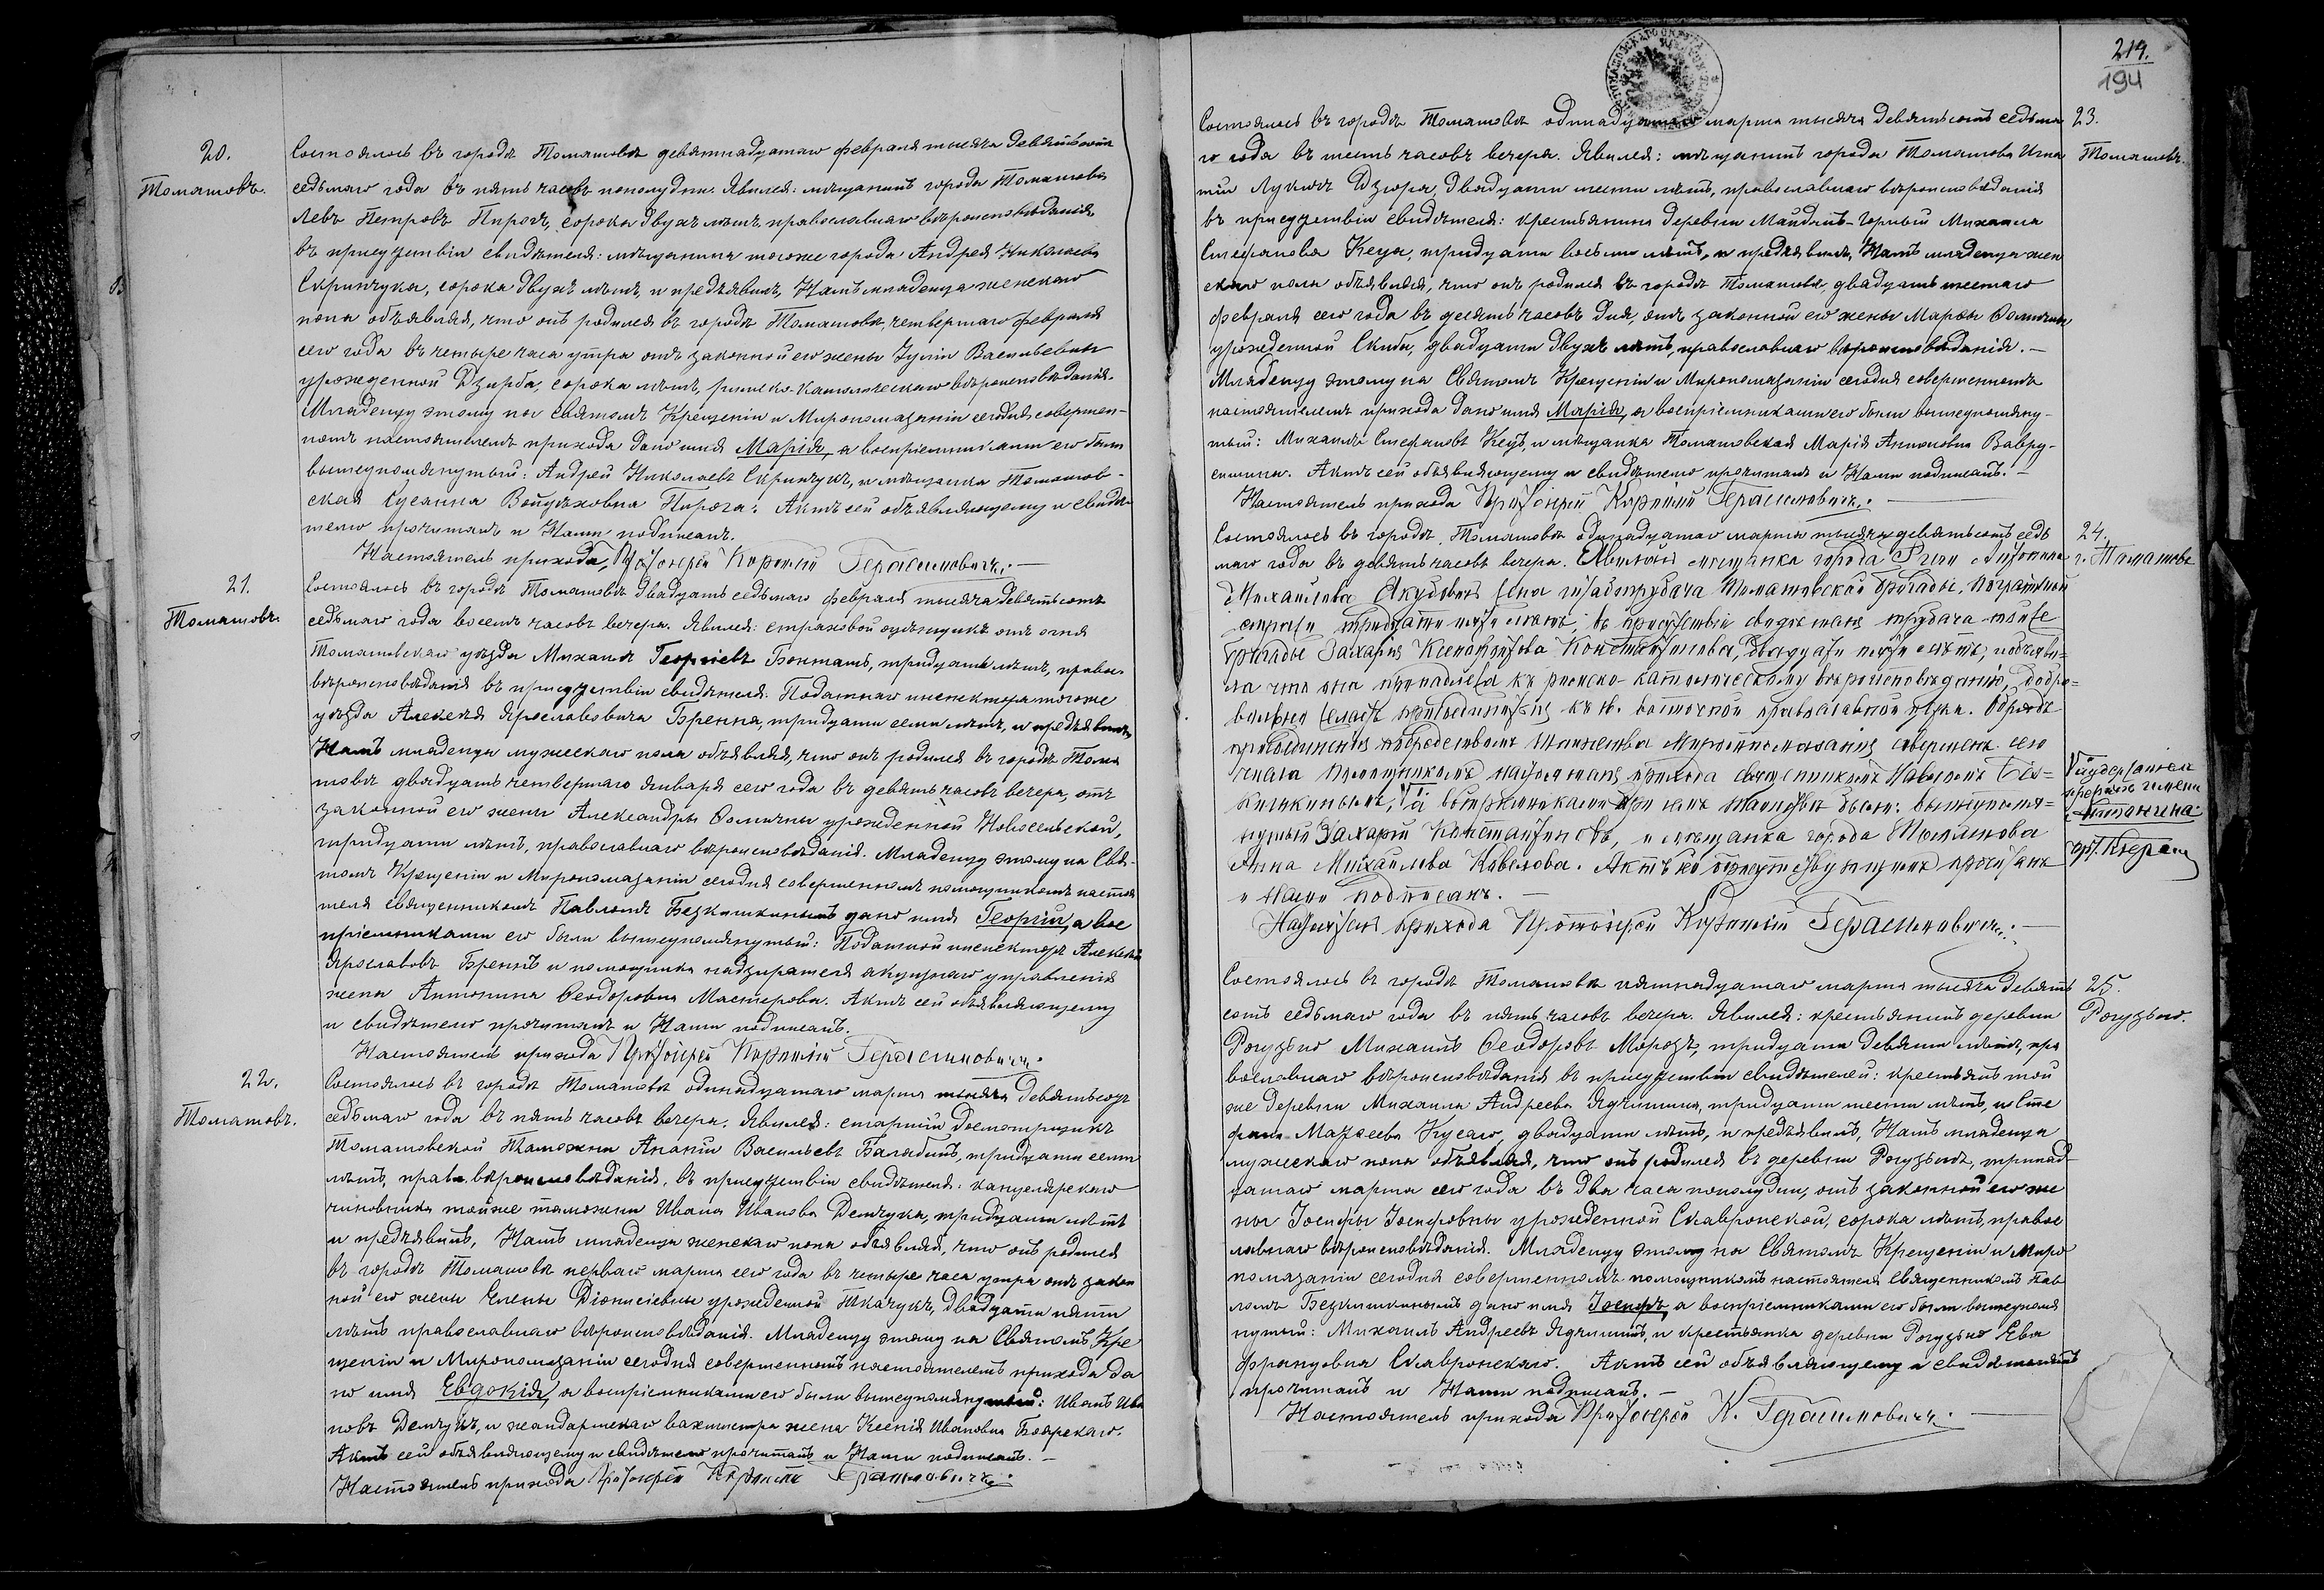 20.
Томашовъ.
Состоялось въ городѣ Томашовѣ девятнадцатаго февраля тысяча девятьсотъ
седьмаго года въ пять часовъ пополудни. Явился: мѣщанинъ города Томашова
Левъ Петровъ Пирогъ, сорока двухъ лѣтъ, православнаго вѣроисповѣданія,
въ присутствіи свидѣтеля: мѣщанина тогоже города Андрея Николаева
Скрипчука, сорока двухъ лѣтъ, и предъявилъ, Намъ младенца женскаго
пола объявляя, что онъ родился въ городѣ Томашовѣ четвертаго февраля
сего года въ четыре часа утра отъ законной его жены Юліи Васильевны
урожденной Дзирба, сорока лѣтъ, римско-католическаго вѣроисповѣданія.
Младенцу этому на Святомъ Крещеніи и Миропомазаніи сегодня совершен-
номъ настоятелемъ прихода дано имя Марія, а воспріемниками его были
вышеупомянутый: Андрей Николаевъ Скрипчукъ, и мѣщанка Томашов-
ская Сусанна Войцѣховна Пирога. Актъ сей объявляющему и свидѣ-
телю прочитанъ и Нами подписанъ.
Настоятель прихода, Протоіерей Корнилій Герасимовичъ.
21.
Томашовъ.
Состоялось въ городѣ Томашовѣ двадцать седьмаго февраля тысяча девятьсотъ
седьмаго года восемъ часовъ вечера. Явился: страховой оцѣнщикъ отъ огня
Томашовскаго уѣзда Михаилъ Георгіевъ Бокташъ, тридцати лѣтъ, правос.
вѣроисповѣданія въ присутствіи свидѣтеля: Податнаго инспектора тогоже
уѣзда Алексѣя Ярославовича Бренна, тридцати семи лѣтъ, и предъявилъ,
Намъ младенца мужескаго пола объявляя, что онъ родился въ городѣ Тома
шовѣ двадцать четвертаго января сего года въ девять часовъ вечера, отъ
законной его жены Александры Фоминны урожденной Новосельской,
тридцати лѣтъ, православнаго вѣроисповѣданія. Младенцу этому на Свя-
томъ Крещеніи и Миропомазаніи сегодня совершенномъ помощникомъ настоя
теля священникомъ Павломъ Безкишкинымъ дано имя Георгій, а вос
пріемниками его были вышеупомянутый: Податной инспекторъ Алексѣй
Ярославовъ Бреннъ и помощника надзирателя акцизнаго управленія
жена Антонина Ѳеодоровна Мастерова. Актъ сей объявляющему
и свидѣтелю прочитанъ и Нами подписанъ.
Настоятель прихода Протоіерей Корнилій Герасимовичъ.
22.
Томашовъ.
Состоялось въ городѣ Томашовѣ одинадцатаго марта тысяча девятьсотъ
седьмаго года въ пять часовъ вечера. Явился: старшій досмотрщикъ
Томашовской Таможни Ананій Васильевъ Балабинъ, тридцати семи
лѣтъ, прав. вѣроисповѣданія, въ присутствіи свидѣтеля: канцелярскаго
чиновника тойже таможни Ивана Иванова Демчука, тридцати лѣтъ
и предъявилъ, Намъ младенца женскаго пола объявляя, что онъ родился
въ городѣ Томашовѣ перваго марта сего года въ четыре часа утра отъ закон
ной его жены Елены Діонисіевны урожденной Ткачукъ, двадцати пяти
лѣтъ православнаго вѣроисповѣданія. Младенцу этому на Святомъ Кре
щеніи и Миропомазаніи сегодня совершенномъ настоятелемъ прихода да
но имя Евдокія, а воспріемниками его были вышеупомянутый: Иванъ Ива
новъ Демчукъ, и жандармскаго вахмистра жена Ксенія Ивановна Боярскаго.
Актъ сей объявляющему и свидѣтелю прочитанъ и Нами подписанъ.
Настоятель прихода Протоіерей Корнилій Герасимовичъ.
214.
194
23.
Томашовъ.
Состоялось въ городѣ Томашовѣ одинадцатаго марта тысяча девятьсотъ седьма
го года въ шесть часовъ вечера. Явился: мѣщанинъ города Томашова Игна
тій Лукичъ Дзюра, двадцати шести лѣтъ, православнаго вѣроисповѣданія
въ присутствіи свидѣтеля: крестьянина деревни Майданъ-Горный Михаила
Стефанова Кеца, тридцати восьми лѣтъ, и предъявилъ, Намъ младенца жен
скаго пола объявляя, что онъ родился въ городѣ Томашовѣ, двадцать шестаго
февраля сего года въ десять часовъ дня, отъ законной его жены Марѳы Фоминны
урожденной Скиба, двадцати двухъ лѣтъ, православнаго вѣроисповѣданія.—
Младенцу этому на Святомъ Крещеніи и Миропомазаніи сегодня совершенномъ
настоятелемъ прихода дано имя Марія, а воспріемниками его были вышеупомяну-
тый: Михаилъ Стефановъ Кецъ, и мѣщанка Томашовская Марія Антоновна Вавру-
сишна. Актъ сей объявляющему и свидѣтелю прочитанъ и Нами подписанъ.—
Настоятель прихода Протоіерей Корнилій Герасимовичъ.
24.
г. Томашовъ
Состоялось въ городѣ Томашовѣ одинадцатаго марта тысяча девятьсотъ седь
маго года въ девять часовъ вечера. Явилась мѣщанка города Риги Антонина
Михайлова Якубовичъ жена штабтрубача Томашовской бригады, пограничной
стражи тридцати пяти лѣтъ, въ присутствіи свидѣтеля трубача тойже
бригады Захарія Ксенофонтова Константинова, двадцати пяти лѣтъ, и объяви-
ла что она принадлежа къ римско-католическому вѣроисповѣданію, добро-
вольно желаетъ присоединиться къ св. восточной православной церкви. Обрядъ
присоединенія посредствомъ таинства Миропомазанія совершенъ сего
числа помощникомъ настоятеля прихода священникомъ Павломъ Без-
кишкинымъ, V а воспріемниками при семъ таинствѣ были: вышеупомя-
нутый Захарій Константиновъ, и мѣщанка города Томашова
Анна Михайлова Ковалова. Актъ сей присутствующимъ прочитанъ
и Нами подписанъ.—
Настоятель прихода Протоіерей Корнилій Герасимовичъ.
имени
Антонина
25.
Рогузьно.
Состоялось въ городѣ Томашовѣ пятнадцатаго марта тысяча девять
сотъ седьмаго года въ пять часовъ вечера. Явился: крестьянинъ деревни
Рогузьно Михаилъ Ѳеодоровъ Морозъ, тридцати девяти лѣтъ, пра
вославнаго вѣроисповѣданія въ присутствіи свидѣтелей: крестьянъ той
же деревни Михаила Андреева Ядчишина, тридцати шести лѣтъ, и Сте
фана Маѳѳеева Кусаго, двадцати лѣтъ, и предъявилъ, Намъ младенца
мужескаго пола объявляя, что онъ родился въ деревни Рогузьнѣ, тринад
цатаго марта сего года въ два часа пополудни, отъ законной его же
ны Іосифы Іосифовны урожденной Скавронской, сорока лѣтъ, правос
лавнаго вѣроисповѣданія. Младенцу этому на Святомъ Крещеніи и Миро
помазаніи сегодня совершенномъ помощникомъ настоятеля Священникомъ Пав
ломъ Безкишкинымъ дано имя Іосифъ, а воспріемниками его были вышеупомя
нутый: Михаилъ Андреевъ Ядчишинъ, и крестьянка деревни Рогузьно Ева
Францовна Скавронскаго. Актъ сей объявляющему и свидѣтелямъ
прочитанъ и Нами подписанъ.—
Настоятель прихода Протоіерей К. Герасимовичъ.